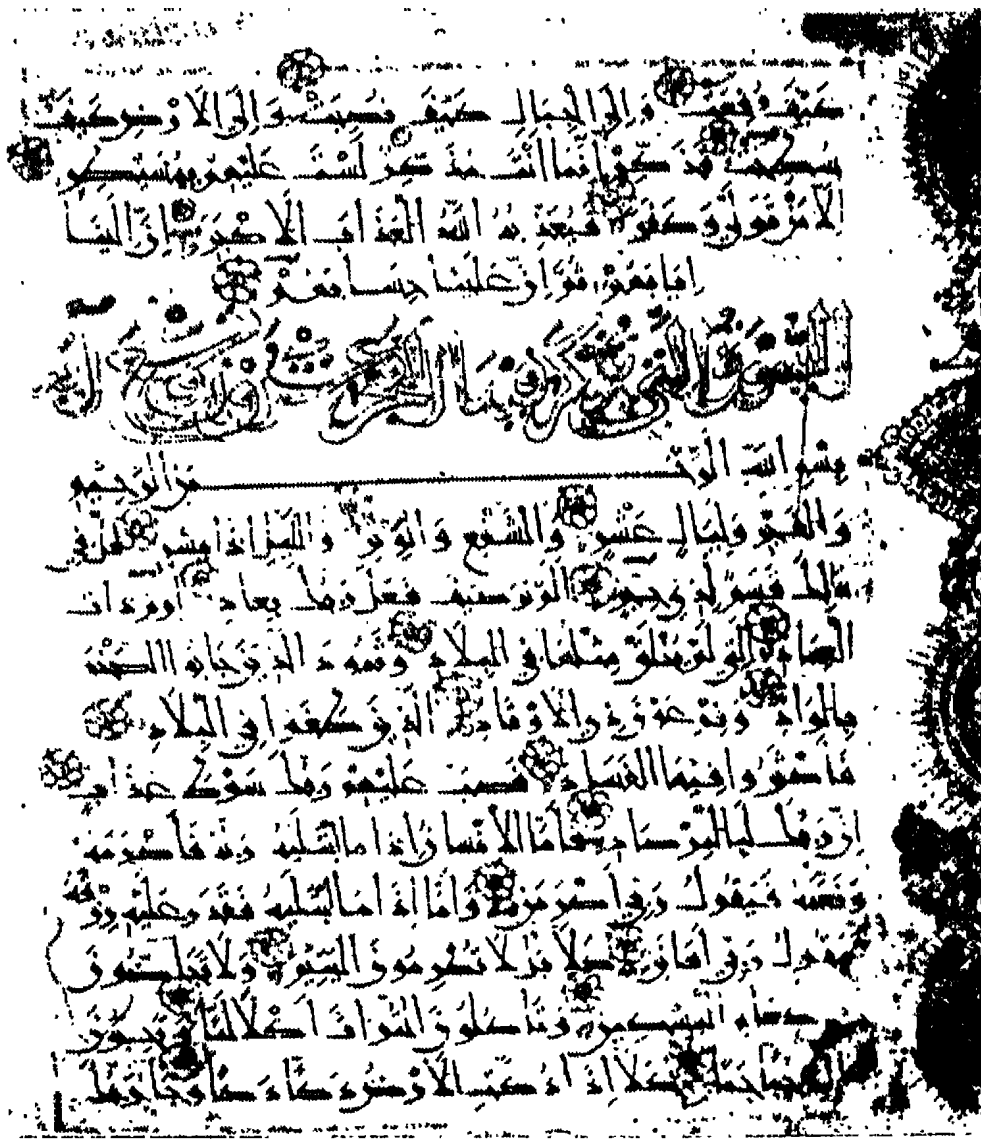 كيف رفعت والى الجبال كيف نصبت والى الارض كيف
سطحت فذكر انما انت مذكر لست عليهم بمسيطر
الا من تولى وكفر فيعذبه الله العذاب الاكبر ان الينا
ايابهم ثم ان علينا حسابهم
السورة التي يذكر فيها الفجر
بسم الله الرحمن الرحيم
والفجر وليال عشر والشفع والوتر واليل اذا يسر هل في
ذلك قسم لذي حجر الم تر كيف فعل ربك بعاد ارم ذات
العماد التي لم يخلق مثلها في البلاد وثمود الذين جابوا الصخر
بالواد وفرعون ذي الاوتاد الذين طغوا في البلاد
فاكثروا فيها الفساد فصب عليهم ربك سوط عذاب
ان ربك لبالمرصاد فاما الانسان اذا ما ابتليه ربه فاكرمه
ونعمه فيقول ربي اكرمن واما اذا ما ابتليه فقدر عليه رزقه
فيقول ربي اهانن كلا بل لا تكرمون اليتيم ولا تحاضون
على طعام المسكين وتاكلون التراث اكلا لما وتحبون
المال حبا جما كلا اذا دكت الارض دكا دكا وجا ربك